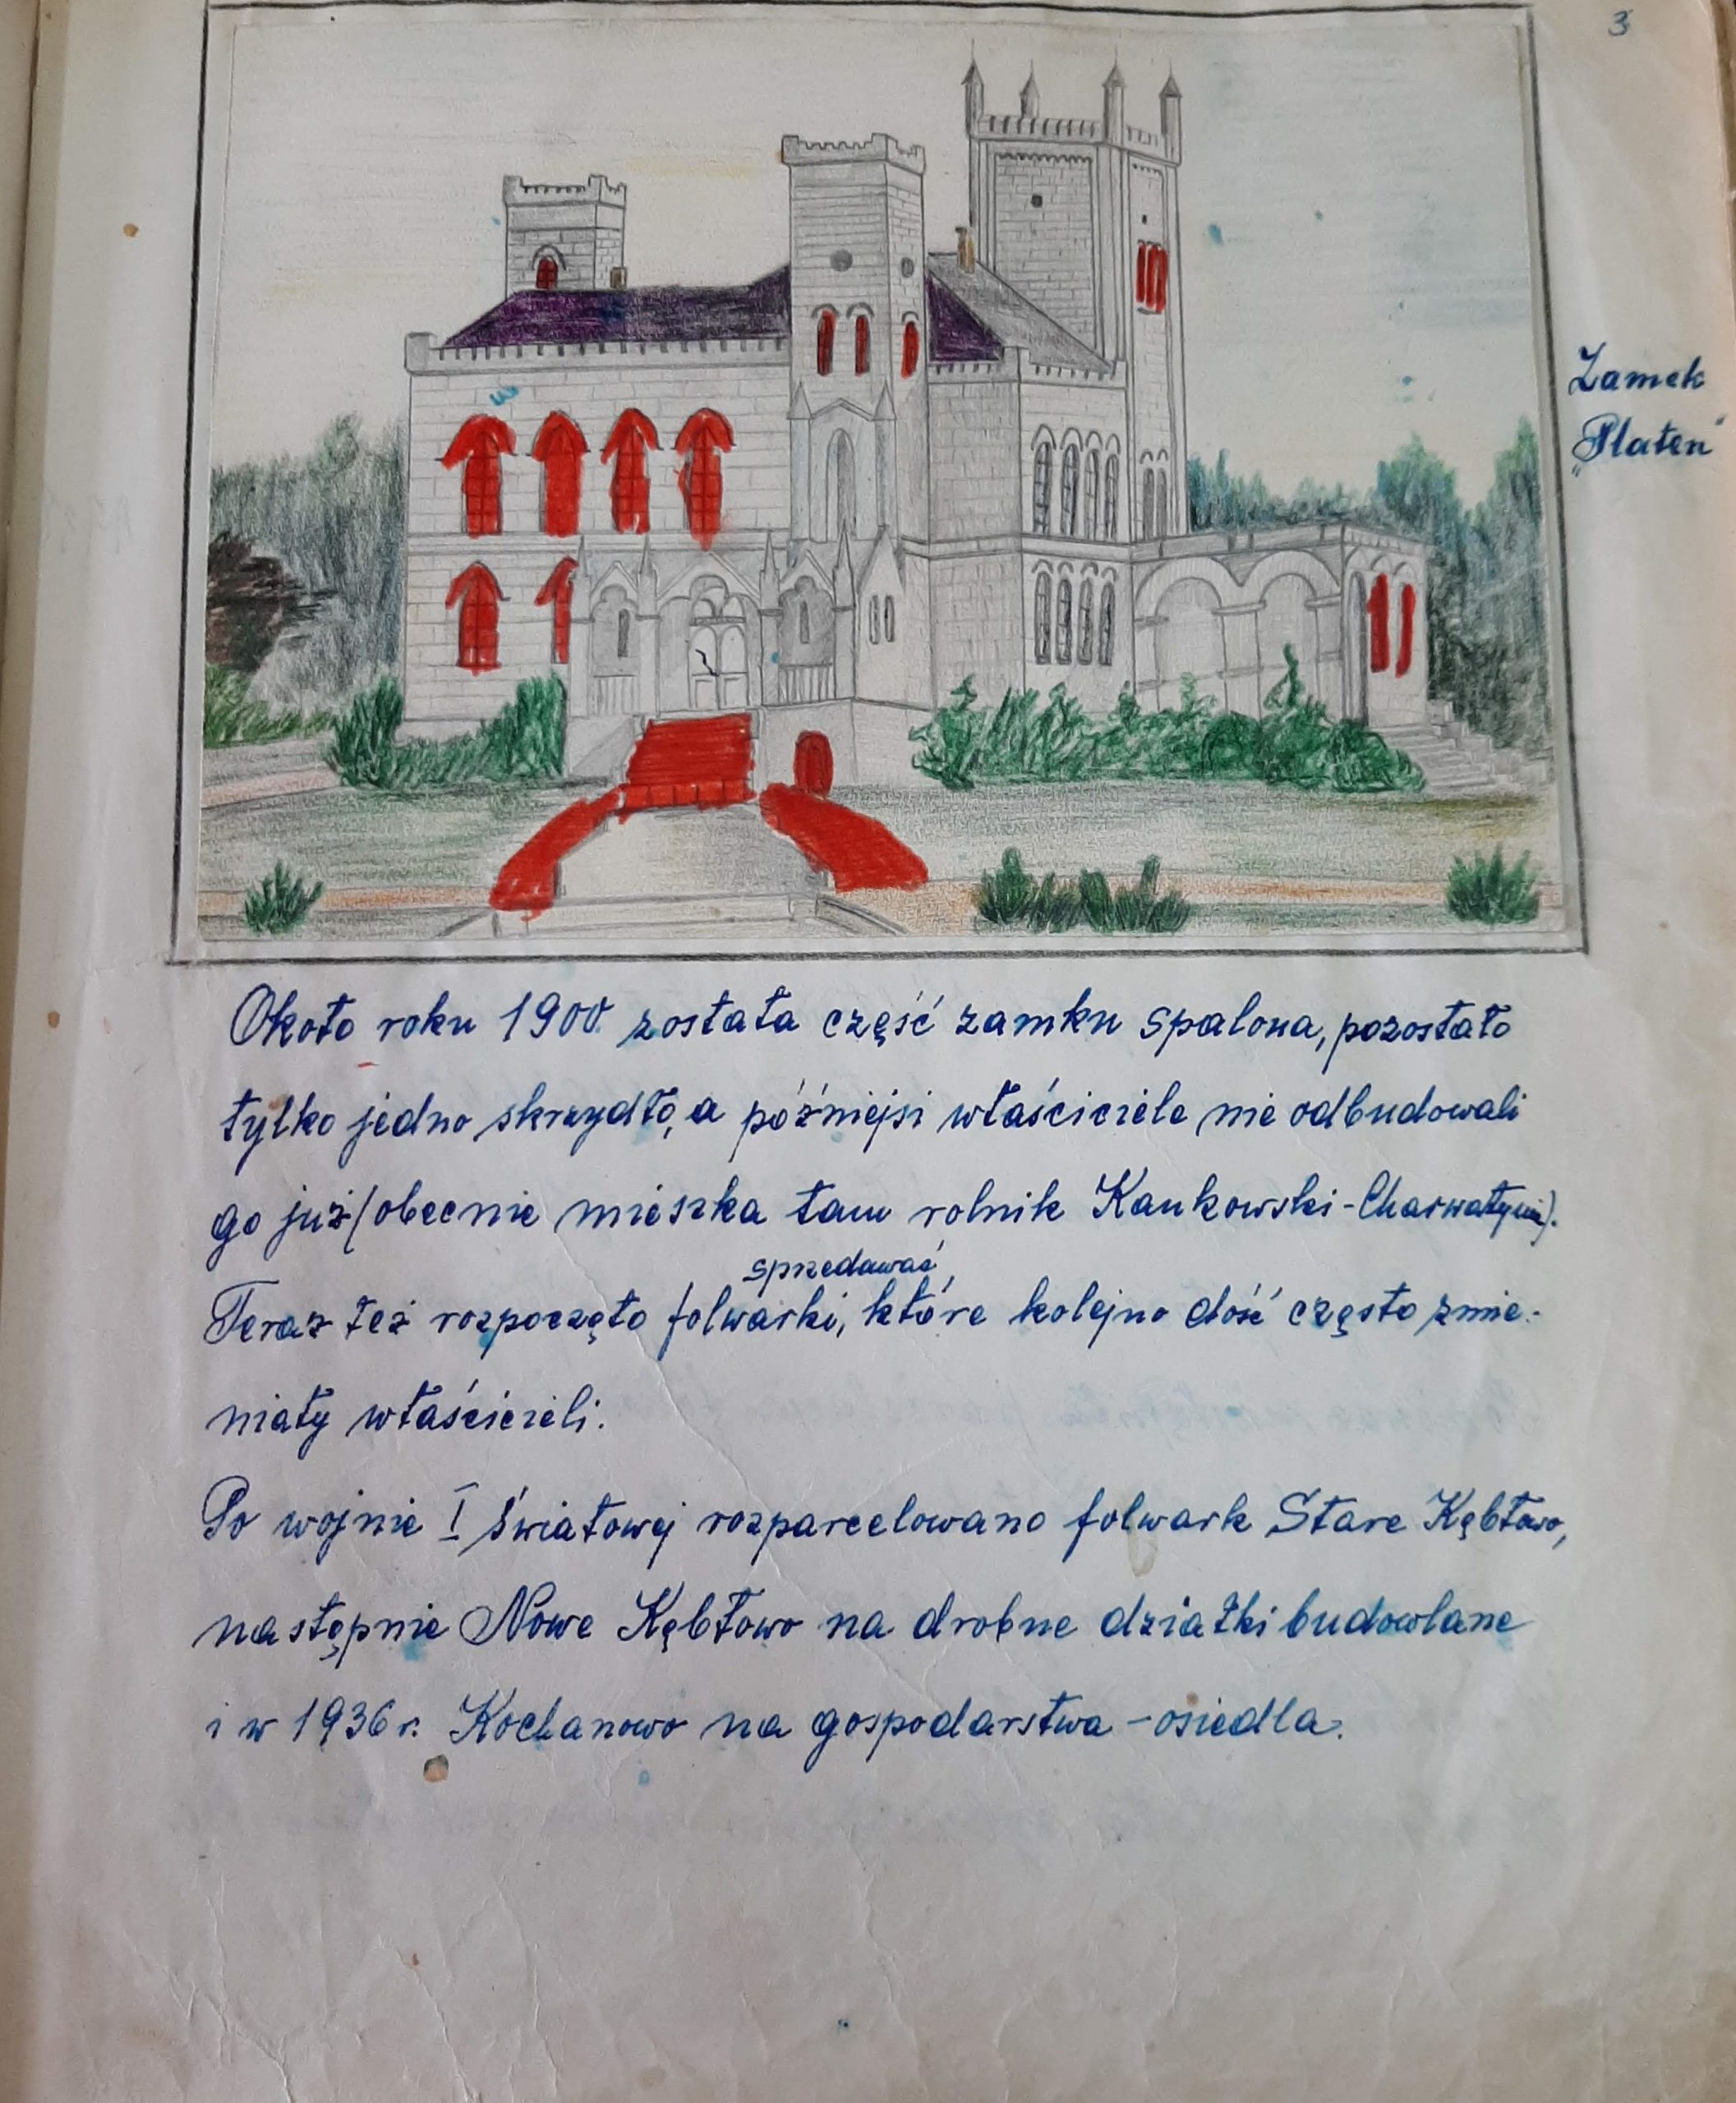 3
Zamek
„Platen"
Około roku 1900 została część zamku spalona, pozostało
tylko jedno skrzydło, a późniejsi właściciele nie odbudowali
go już (obecnie mieszka tam rolnik Kankowski-Charwatynia).
sprzedawać
Teraz też rozpoczęto folwarki, które kolejno dość często zmie-
niały właścicieli.
Po wojnie I światowej rozparcelowano folwark Stare Kębłowo,
następnie Nowe Kębłowo na drobne działki budowlane
i w 1936 r. Kochanowo na gospodarstwa - osiedla.